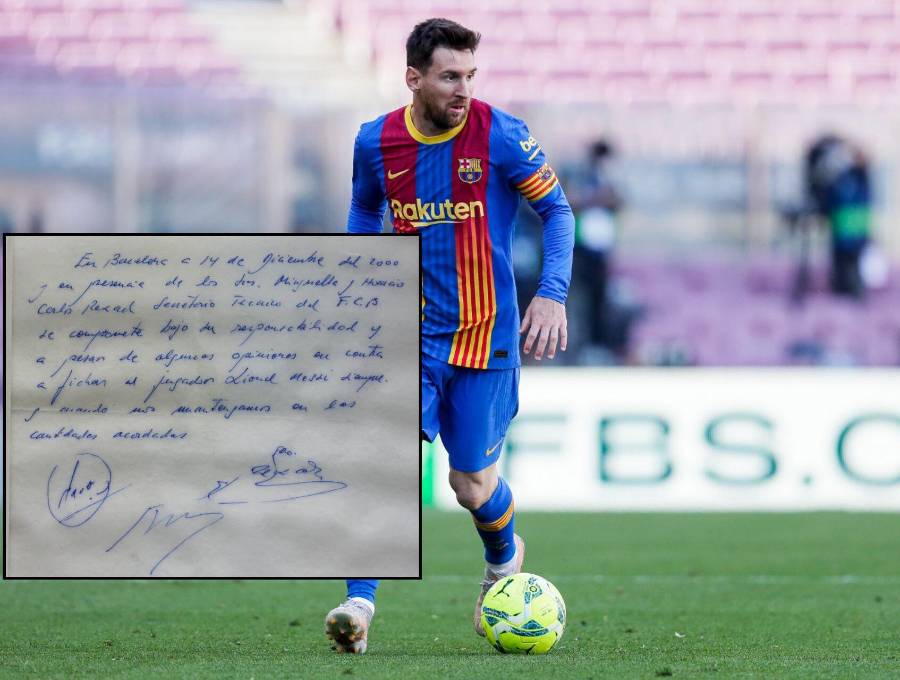 En Barcelona a 14 de Diciembre del 2000
y en presencia de los Srs. Minguella y Horacio
Carlos Rexach Secretario Tecnico del F.C.B
se compromete bajo su responsabilidad y
a pesar de algunas opiniones en contra
a fichar al jugador Lionel Messi siempre
y cuando nos mantengamos en las
cantidades acordadas
be
Rakuten
FBS.C